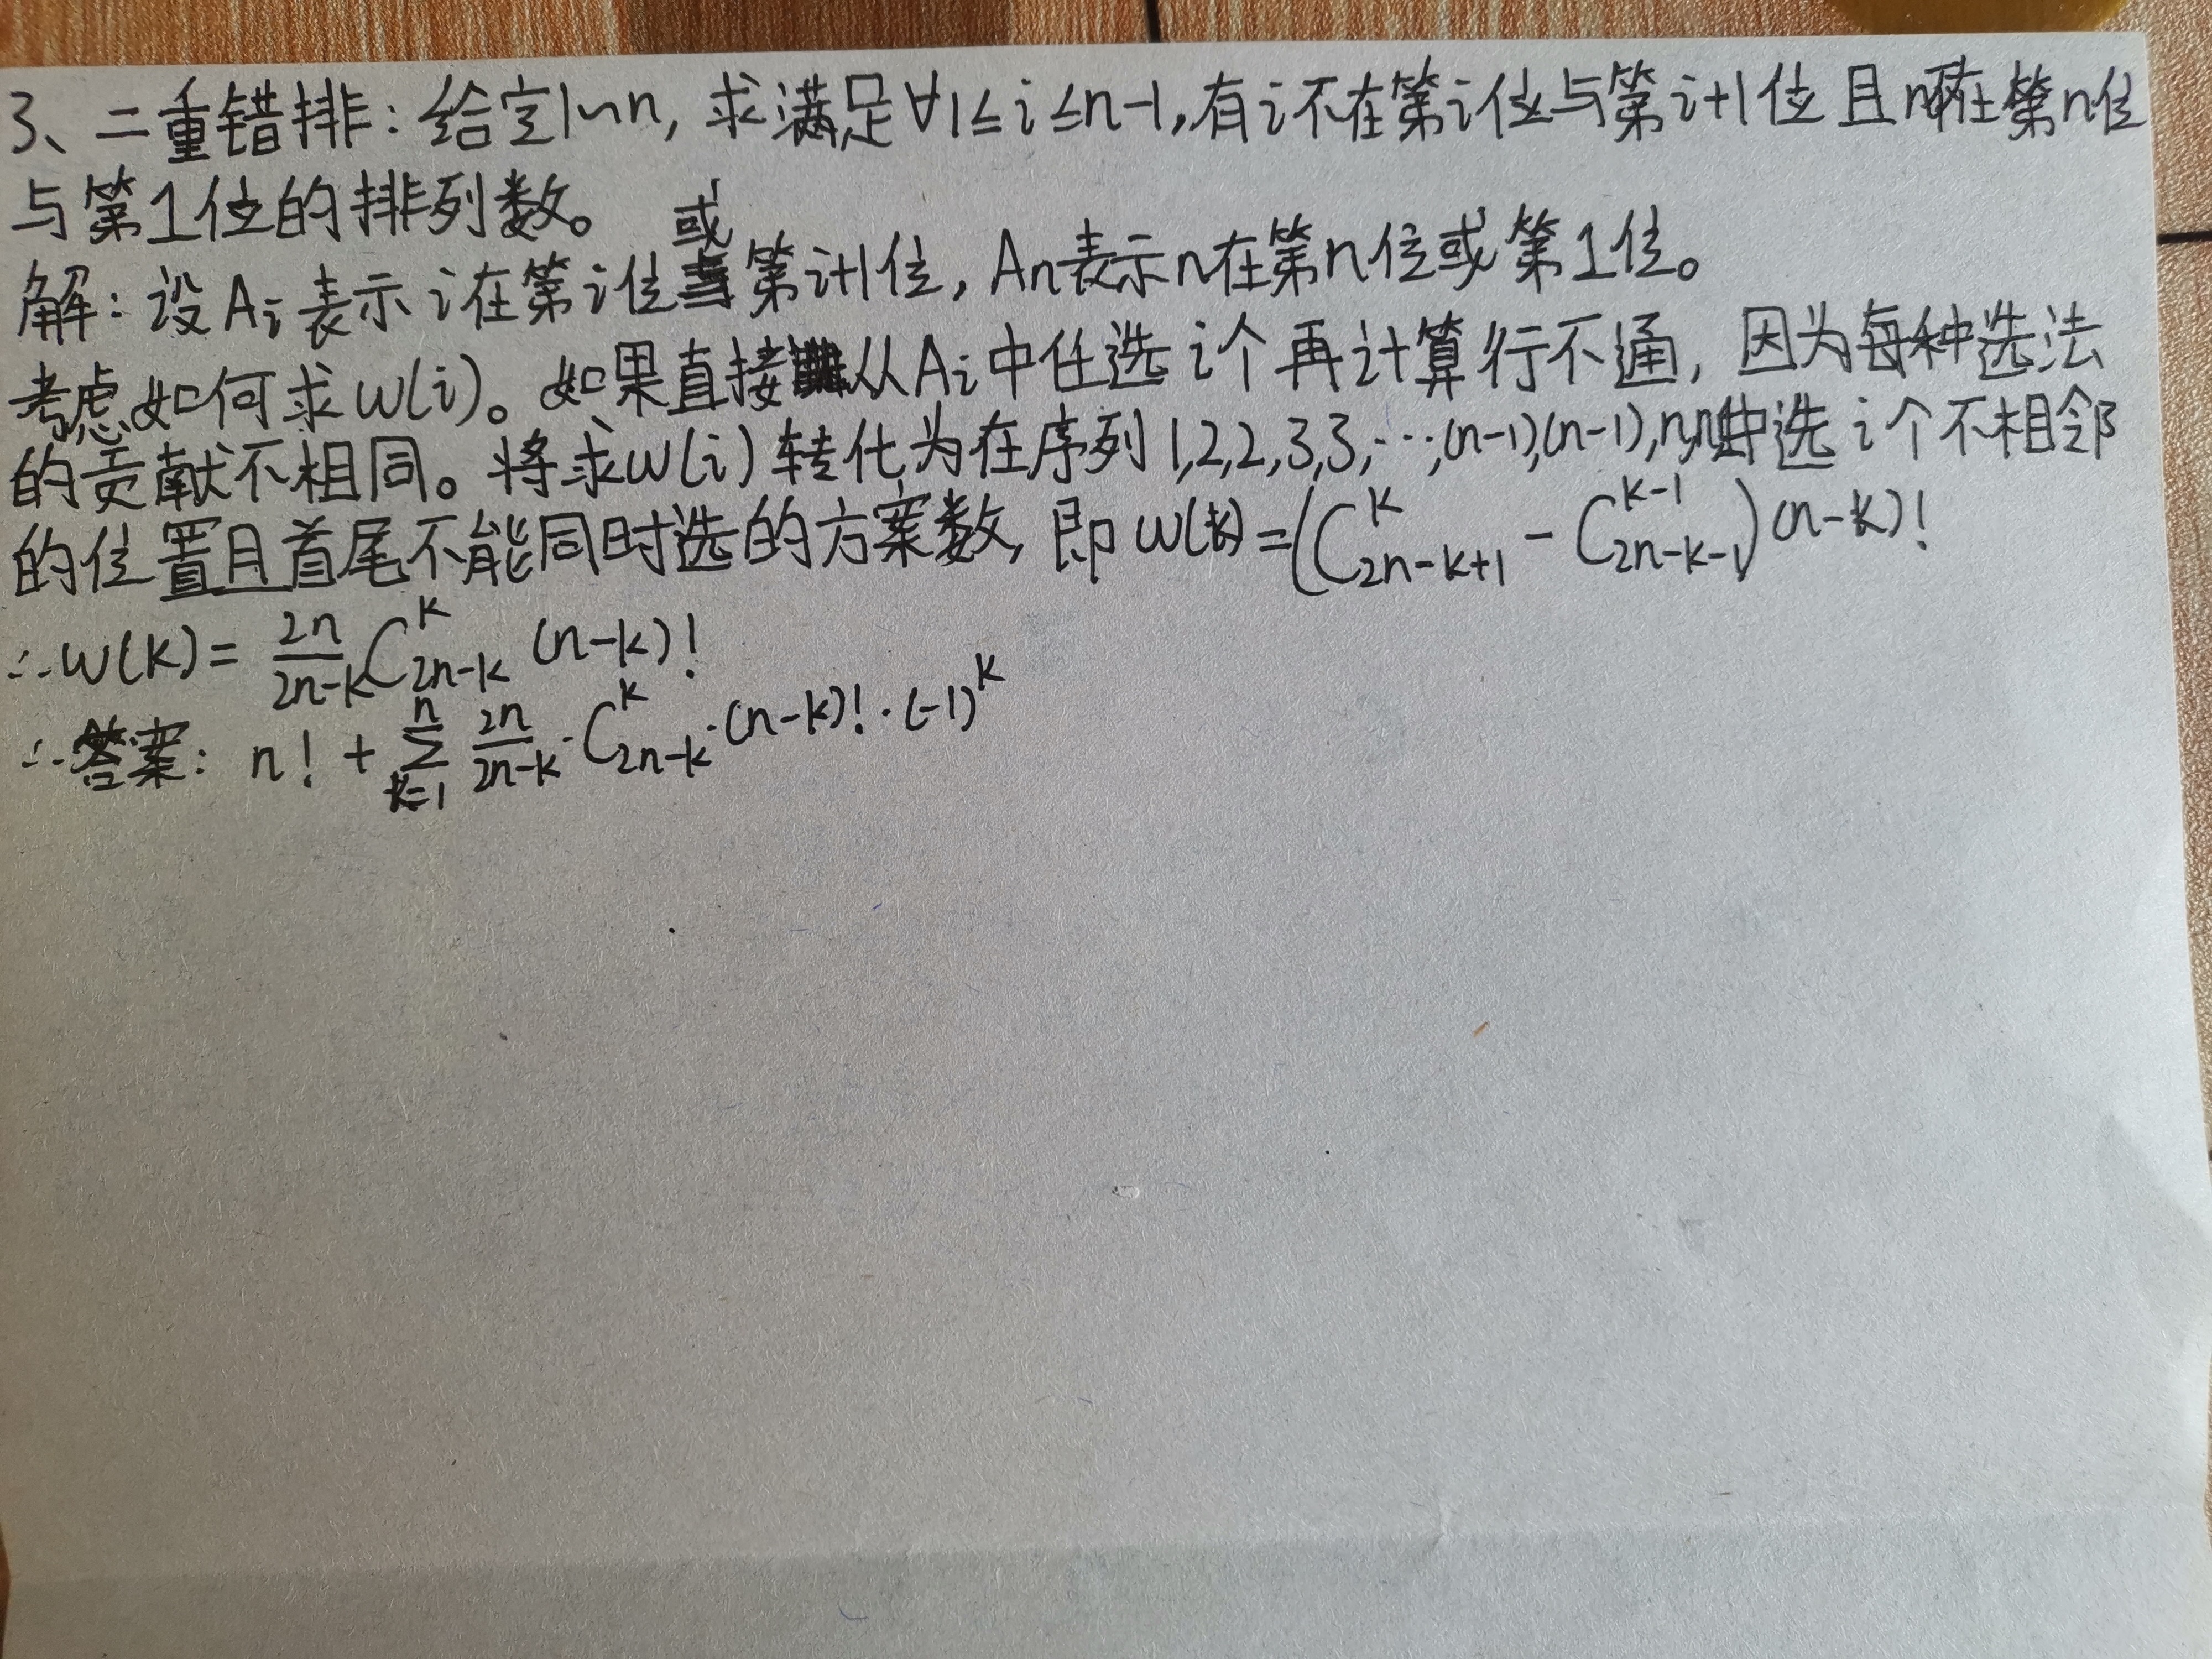 3、二重错排：给定1~n, 求满足∀1≤i≤n-1,有i不在第i位与第i+1位 且n不在第n位
与第1位的排列数。
解：设Ai表示i在第i位或第i+1位, An表示n在第n位或第1位。
考虑如何求w(i)。如果直接从Ai中任选i个再计算行不通, 因为每种选法
的贡献不相同。将求w(i)转化为在序列1,2,2,3,3,…,(n-1),(n-1),n,n,1中选i个不相邻
的位置且首尾不能同时选的方案数, 即w(k)=(C_{2n-k+1}^{k} - C_{2n-k-1}^{k-1})(n-k)!
∴w(k)= \frac{2n}{2n-k}C_{2n-k}^{k}(n-k)!
∴答案: n! + \sum_{k=1}^{n} \frac{2n}{2n-k}·C_{2n-k}^{k}·(n-k)!·(-1)^{k}